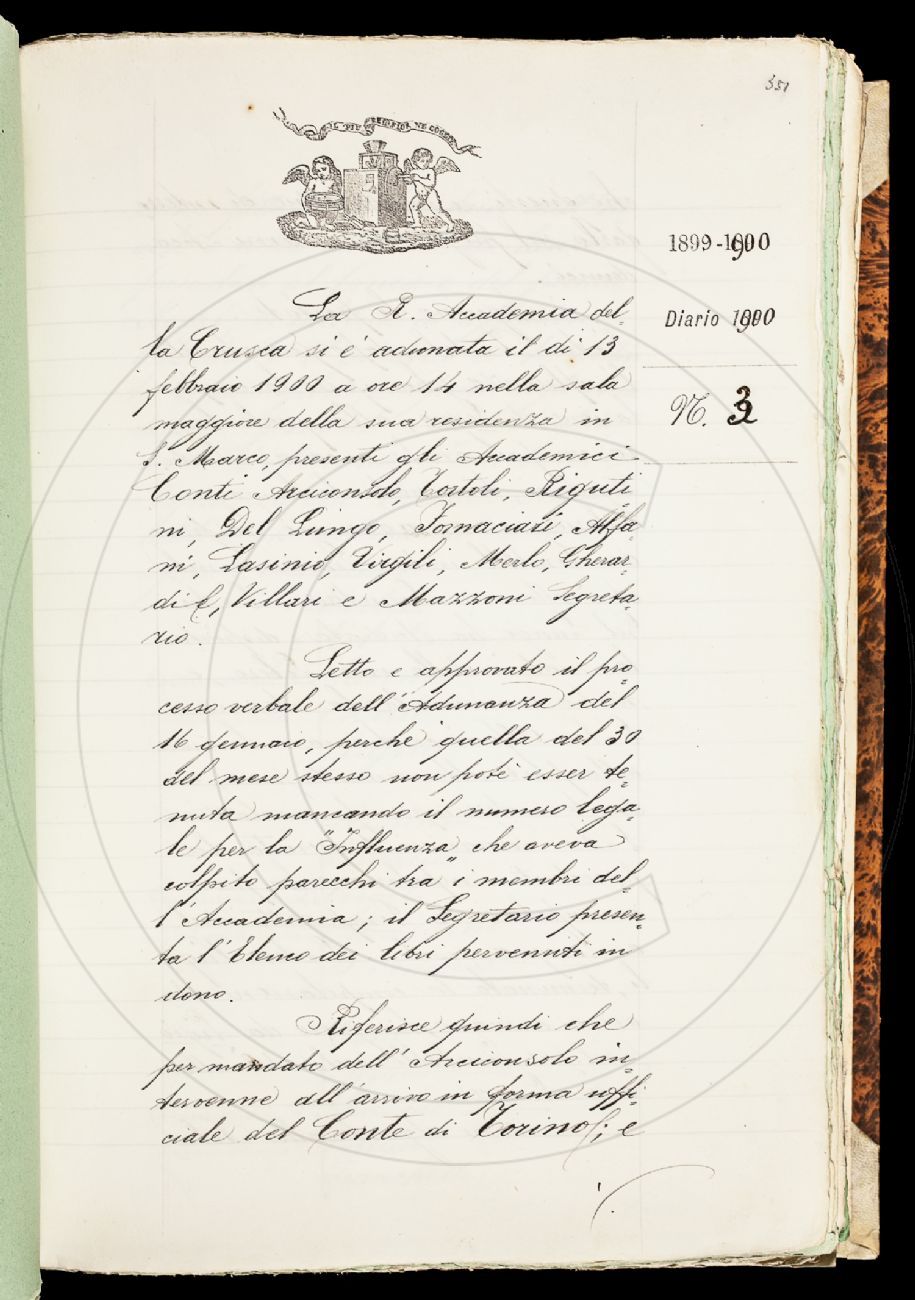 351
IL PIÙ BEL FIOR NE COGLIE
1899-1900
Diario 1900
N. 3
La R. Accademia del-
la Crusca si è adunata il dì 13
febbraio 1900 a ore 14 nella sala
maggiore della sua residenza in
S. Marco, presenti gli Accademici
Conti Arciconsolo, Tortoli, Riguti
ni, Del Lungo, Fornaciari, Alfa-
ni, Lasinio, Virgili, Merlo, Gherar-
di C, Villari e Mazzoni Segreta-
rio.
Letto e approvato il pro
cesso verbale dell'Adunanza del
16 gennaio, perchè quella del 30
del mese stesso non potè esser te-
nuta mancando il numero lega-
le per la "Influenza" che aveva
colpito parecchi tra i membri del-
l'Accademia; il Segretario presen-
ta l'Elenco dei libri pervenuti in
dono.
Riferisce quindi che
per mandato dell'Arciconsolo in-
tervenne all'arrivo in forma uffi-
ciale del Conte di Torino; e